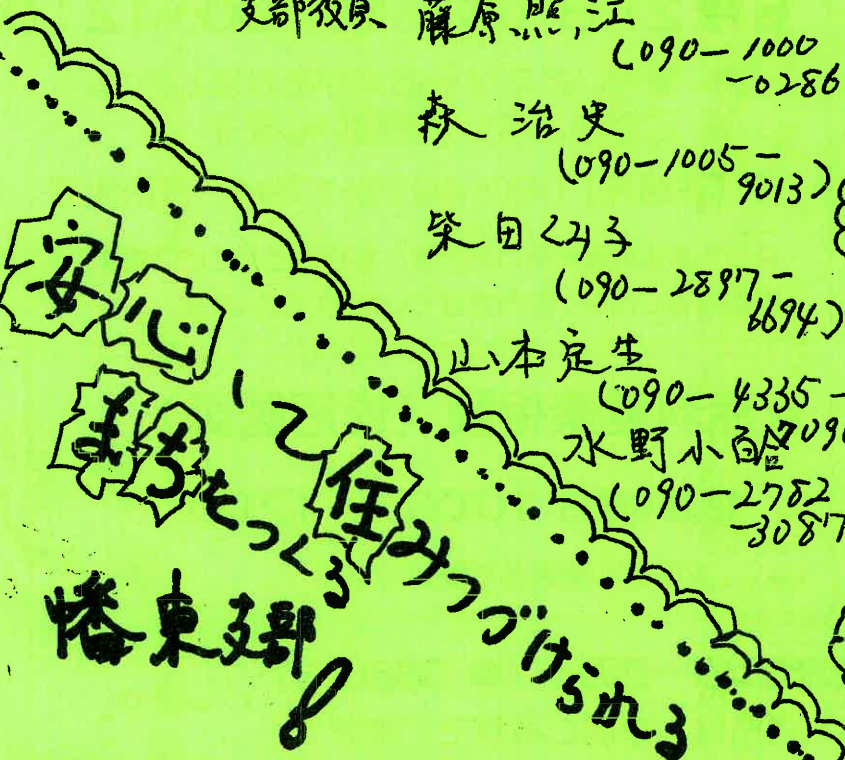 支部役員 藤原照江
(090-1000
-0286
森 治史
(090-1005-
9013)
柴田くみ子
(090-2897-
6694)
山本定生
(090-4335-
7090
水野小百合
(090-2782
-3087
安心して住みつづけられる
まちをつくる
幡東支部